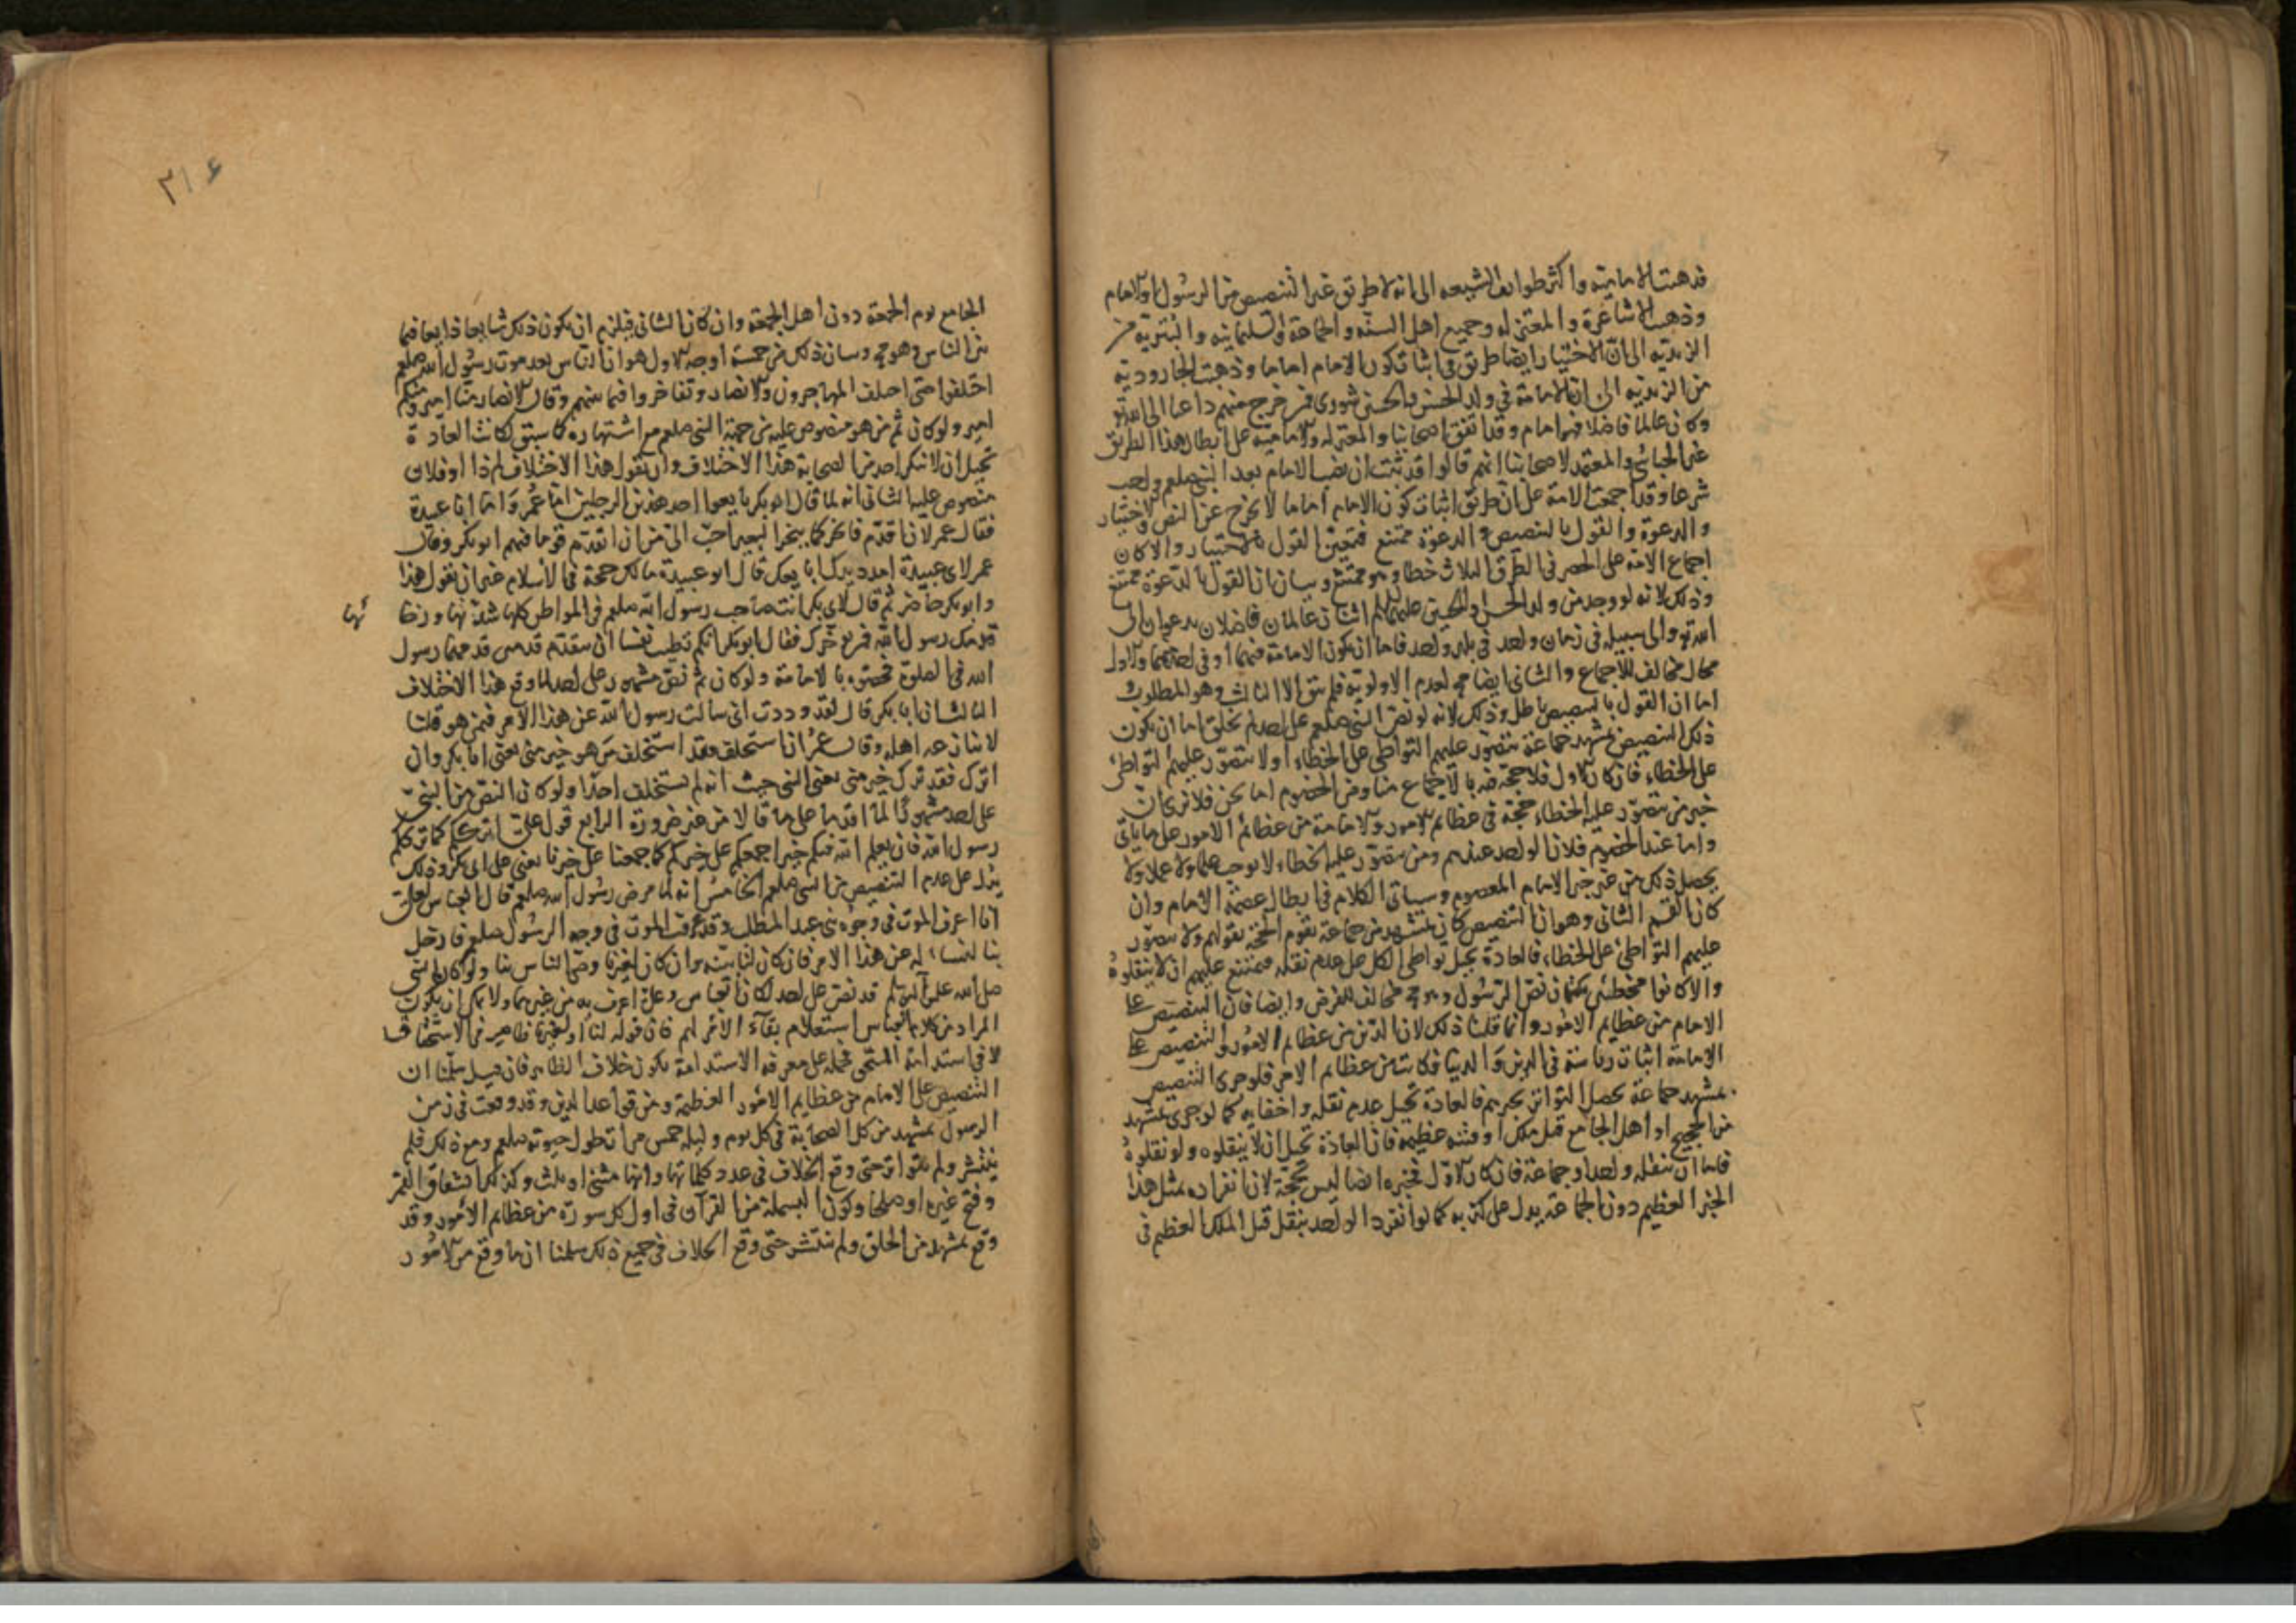 فذهبت الامامية واكثر طوائف الشيعه الى انه لا طريق غير التنصيص من الرسول او الامام
وذهبت الاشاعرة والمعتزله وجميع اهل السنه والجماعة والسليمانيه والبتريه من
الزيديه الى ان الاختيار ايضا طريق فى اثبات كون الامام اماما وذهبت الجارودية
من الزيديه الى ان الامامة فى ولد الحسن والحسين شورى فمن خرج منهم داعيا الى الله تع
وكان عالما فاضلا فهو امام وقد اتفق اصحابنا والمعتزله والامامية على ابطال هذا الطريق
غير الجبائى والمعتمد لاصحابنا انهم قالوا قد ثبت ان نصب الامام بعد النبى صلعم واجب
شرعا وقد اجمعت الامة على ان طريق اثبات كون الامام اماما لا يخرج عن النص والاختيار
والدعوة والقول بالتنصيص والدعوة ممتنع فتعين القول بالاختيار والا كان
اجماع الامة على الحصر فى الطرق الثلاث خطا وهو ممتنع وبيان ان القول بالدعوة ممتنع
وذلك لانه لو وجد من ولد الحسن والحسين عليهما السلم اثنان عالمان فاضلان يدعوان الى
الله تع والى سبيله فى زمان واحد فى بلد واحد فاما ان يكون الامامة فيهما او فى احدهما والاول
محال مخالف للاجماع والثانى ايضا مح لعدم الاولوية فلم يبق الا الثالث وهو المطلوب
اما ان القول بالتنصيص باطل وذلك لانه لو نص النبى صلعم على احد لم يخل اما ان يكون
ذلك التنصيص بمشهد جماعة يتصور عليهم التواطى على الخطاء او لا يتصور عليهم التواطئ
على الخطاء فان كان الاول فلا حجة فيه بالاجماع منا ومن الخصوم اما نحن فلا نرى ان
خبر من يتصور عليه الخطاء حجة فى عظائم الامور والامامة من عظائم الامور على ما ياتى
واما عند الخصوم فلان الواحد عندهم ومن يتصور عليه الخطاء لا يوجب علما ولا عملا ولا
يحصل ذلك من غير خبر الامام المعصوم وسياتى الكلام فى ابطال عصمة الامام وان
كان القسم الثانى وهو ان التنصيص كان بمشهد من جماعة تقوم الحجة بقولهم ولا يتصور
عليهم التواطئ على الخطاء فالعادة تحيل تواطى الكل على عدم نقله فيمتنع عليهم ان لا ينقلوه
والا كانوا مخطئين بكتمان نص الرسول وهو مح مخالف للفرض وايضا فان التنصيص على
الامام من عظايم الامور وانما قلنا ذلك لان الدين من عظايم الامور والتنصيص على
الامامة اثبات رياسة فى الدين والدنيا فكانت من عظايم الامر فلو جرى التنصيص
بمشهد جماعة يحصل التواتر بخبرهم فالعادة تحيل عدم نقله واخفايه كما لو جرى بمشهد
من الحجيج او اهل الجامع قتل ملك او فتنه عظيمة فان العادة تحيل ان لا ينقلوه ولو نقلوه
فاما ان ينقله واحد او جماعة فان كان الاول فخبره ايضا ليس بحجة لان انفراده بمثل هذا
الخبر العظيم دون الجماعة يدل على كذبه كما لو انفرد الواحد بنقل قتل الملك العظيم فى
٣١٤
الجامع يوم الجمعة دون اهل الجمعة وان كان الثانى فيلزم ان يكون ذلك شايعا ذايعا فيما
بين الناس وهو مح وبيان ذلك من خمسة اوجه الاول هو ان الناس بعد موت رسول الله صلعم
اختلفوا حتى اختلف المهاجرون والانصار وتفاخروا فيما بينهم وقال الانصار منا امير ومنكم
امير ولو كان ثم من هو منصوص عليه من جهة النبى صلعم مع اشتهاره كما سبق لكانت العادة
تحيل ان لا ينكر احد من الصحابة هذا الاختلاف وان يقول هذا الاختلاف لم ذا او فلان
منصوص عليه الثانى انه لما قال ابو بكر بايعوا احد هذين الرجلين اما عمر واما ابا عبيدة
فقال عمر لان اقدم فانحر كما ينحر البعير احب الى من ان اتقدم قوما فيهم ابو بكر وقال
عمر لابى عبيدة امدد يدك ابايعك قال ابو عبيدة مالك حجة فى الاسلام غير ان تقول هذا
وابو بكر حاضر ثم قال لابى بكر انت صاحب رسول الله صلعم فى المواطن كلها شدتها ورخا
ئها
قدمك رسول الله فمن يؤخرك فقال ابو بكر ايكم تطيب نفسا ان يتقدم قدمين قدمهما رسول
الله فى الصلوة محتجه بالامامة ولو كان ثم نص مشهور على احد لما وقع هذا الاختلاف
الثالث ان ابا بكر قال لقد وددت انى سالت رسول الله عن هذا الامر فيمن هو فكنا
لا ننازعه اهله وقال عمر ان استخلف فقد استخلف من هو خير منى يعنى ابا بكر وان
اترك فقد ترك خير منى يعنى النبى حيث انه لم يستخلف احدا ولو كان النص من النبى
على احد مشهودا لما اقدما على ما قالا من غير ضرورة الرابع قول على اترككم كما ترككم
رسول الله فان يعلم الله فيكم خيرا جمعكم على خيركم كما جمعنا على خيرنا يعنى على ابى بكر وذلك
يدل على عدم التنصيص من النبى صلعم الخامس انه لما مرض رسول الله صلعم قال العباس لعلى
انا اعرف الموت فى وجوه بنى عبد المطلب وقد عرفت الموت فى وجه الرسول صلعم فادخل
بنا لنساله عن هذا الامر فان كان لنا بينه وان كان لغيرنا وصى الناس بنا ولو كان النبى
صلى الله عليه وآله وسلم قد نص على احد لكان العباس وعلى اعرف به من غيرهما ولا يمكن ان يكون
المراد من كلام العباس استعلام بقاء الامر لهم فان قوله لنا او لغيرنا ظاهر فى الاستحقاق
لا فى استدامة المستحق فحمله على معرفة الاستدامة يكون خلاف الظاهر فان قيل سلمنا ان
التنصيص على الامام من عظايم الامور العظيمة ومن قواعد الدين وقد وقعت فى زمن
الرسول بمشهد من كل الصحابة فى كل يوم وليله خمس مرات طول حيوته صلعم ومع ذلك فلم
ينتشر ولم يتواتر حتى وقع الخلاف فى عدد كلماتها وانها مثنى او ثلث وكذلك انشقاق القمر
وفتح غيره او صلحا وكون البسملة من القرآن فى اول كل سورة من عظايم الامور وقد
وقع بمشهد من الخلق ولم ينتشر حتى وقع الخلاف فى جميع ذلك سلمنا ان ما وقع من الامور